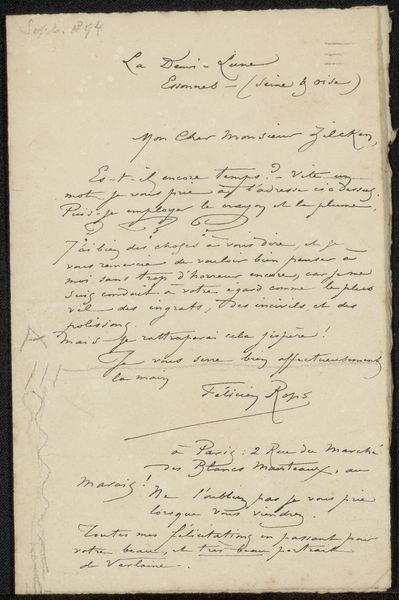 Sept. 1894
La Demi-Lune
Essonnes - (Seine & oise)
Mon Cher Monsieur Zilcken,
Es-t-il encore temps? - Vite un
mot je vous prie à l'adresse ci-dessus.
Puis-je employer le crayon et la plume.
? ? ? ?
J'ai bien des choses à vous dire, et je
vous remercie de vouloir bien penser à
moi sans trop d'horreur encore, car je me
suis conduit à votre égard comme le plus
vil des ingrats, des incivils, et des
polissons.
Mais je rattraperai cela j'espère!
Je vous serre bien affectueusement
la main
Félicien Rops
à Paris: 2 Rue du Marché
des Blancs Manteaux, au
Marais!
Ne l'oubliez pas je vous prie
lorsque vous viendrez.
Toutes mes félicitations en passant pour
votre beau, et très beau portrait
de Verlaine.